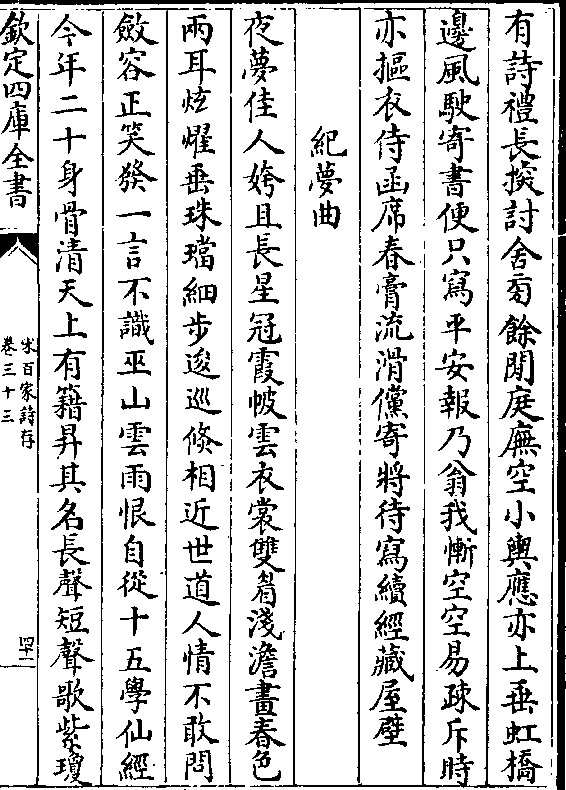 有詩禮長探討舍西餘閒庭廡空小輿應亦上垂虹橋
邊風駛寄書便只寫平安報乃翁我慚空空易疎斥時
亦摳衣侍函席春膏流滑儻寄將待寫續經藏屋壁
紀夢曲
夜夢佳人姱且長星冠霞帔雲衣裳雙眉淺澹畫春色
兩耳炫燿垂珠璫細步逡巡倐相近世道人情不敢問
斂容正笑發一言不識巫山雲雨恨自從十五學仙經
今年二十身骨清天上有籍昇其名長聲短聲歌紫瓊
欽定四庫全書
宋百家詩存
卷三十三
四十二